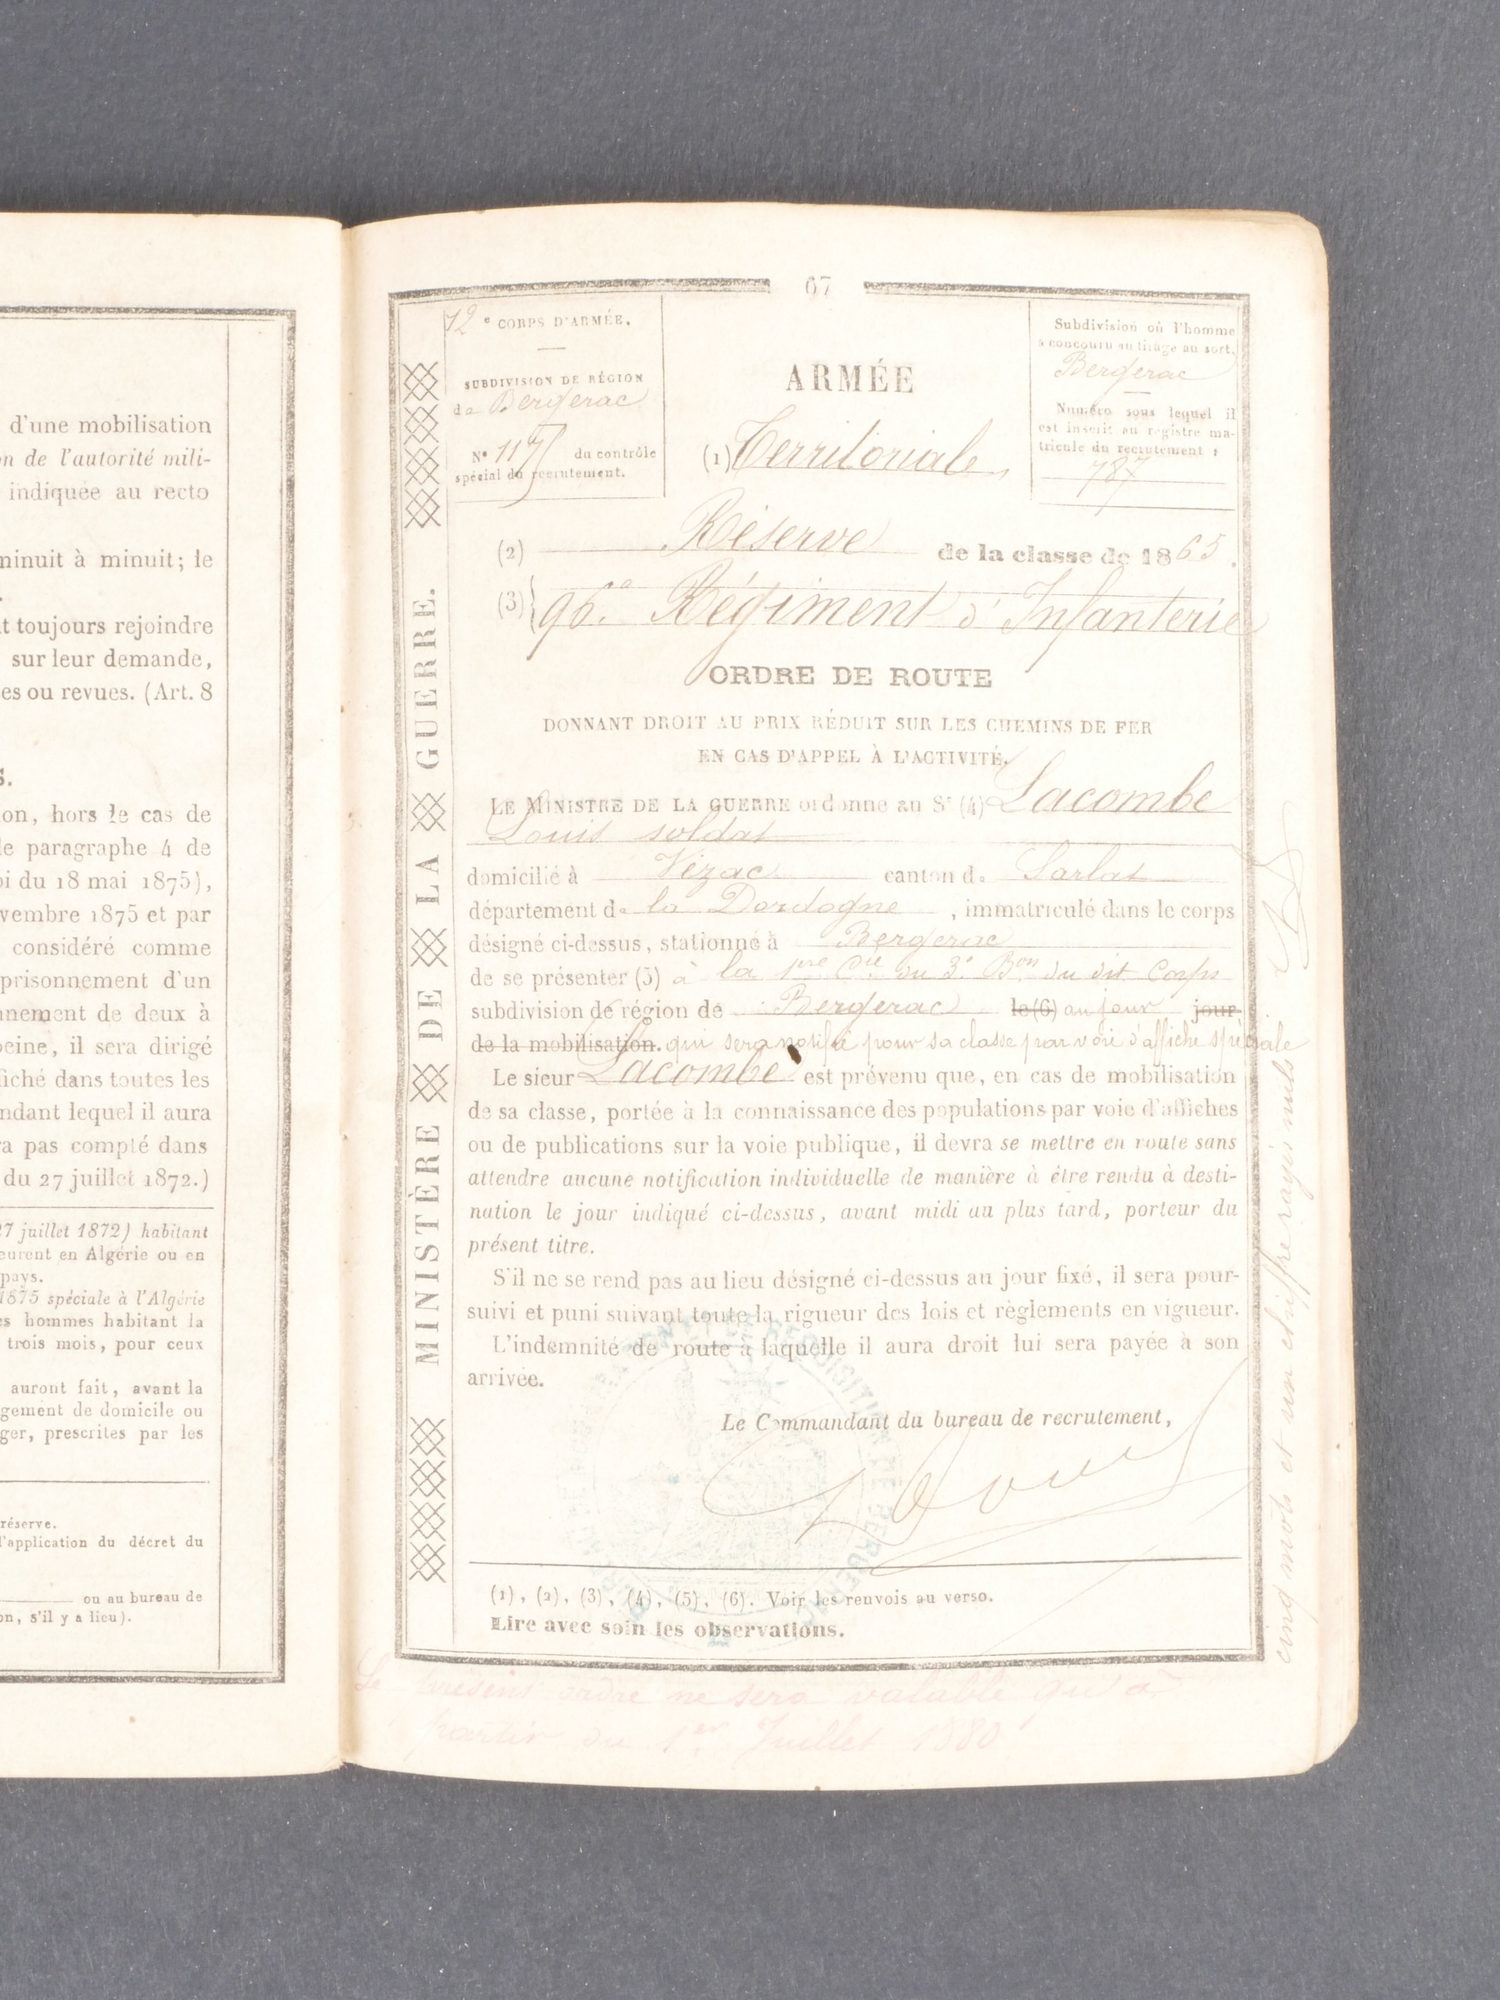 d'une mobilisation
n de l'autorité mili-
indiquée au recto
minuit à minuit; le
t toujours rejoindre
sur leur demande,
es ou revues. (Art. 8
S.
on, hors le cas de
le paragraphe 4 de
oi du 18 mai 1875),
vembre 1875 et par
considéré comme
prisonnement d'un
nnement de deux à
peine, il sera dirigé
fiché dans toutes les
ndant lequel il aura
ra pas compté dans
du 27 juillet 1872.)
27 juillet 1872) habitant
eurent en Algérie ou en
pays.
1875 spéciale à l'Algérie
es hommes habitant la
trois mois, pour ceux
auront fait, avant la
gement de domicile ou
ger, prescrites par les
réserve.
l'application du décret du
ou au bureau de
on, s'il y a lieu).
67
12e CORPS D'ARMÉE.
SUBDIVISION DE RÉGION
de Bergerac
No 117 du contrôle
spécial du recrutement.
ARMÉE
(1) Territoriale
Subdivision où l'homme
a concouru au tirage au sort.
Bergerac
Numéro sous lequel il
est inscrit au registre ma-
tricule du recrutement :
787
(2) Réserve de la classe de 1865.
(3) 96e Régiment d'Infanterie
ORDRE DE ROUTE
DONNANT DROIT AU PRIX RÉDUIT SUR LES CHEMINS DE FER
EN CAS D'APPEL À L'ACTIVITÉ.
LE MINISTRE DE LA GUERRE ordonne au Sr (4) Lacombe
Louis soldat
domicilié à Vézac canton de Sarlat
département de la Dordogne, immatriculé dans le corps
désigné ci-dessus, stationné à Bergerac
de se présenter (5) à la 1re Cie du 3e Bon du dit Corps
subdivision de région de Bergerac le (6) au jour jour
de la mobilisation. qui sera notifié pour sa classe par voie d'affiche spéciale
Le sieur Lacombe est prévenu que, en cas de mobilisation
de sa classe, portée à la connaissance des populations par voie d'affiches
ou de publications sur la voie publique, il devra se mettre en route sans
attendre aucune notification individuelle de manière à être rendu à desti-
nation le jour indiqué ci-dessus, avant midi au plus tard, porteur du
présent titre.
S'il ne se rend pas au lieu désigné ci-dessus au jour fixé, il sera pour-
suivi et puni suivant toute la rigueur des lois et règlements en vigueur.
L'indemnité de route à laquelle il aura droit lui sera payée à son
arrivée.
Le Commandant du bureau de recrutement,
(1), (2), (3), (4), (5), (6). Voir les renvois au verso.
Lire avec soin les observations.
MINISTÈRE DE LA GUERRE.
cinq mots et un chiffre rayés nuls
Le présent ordre ne sera valable qu'à
partir du 1er Juillet 1880